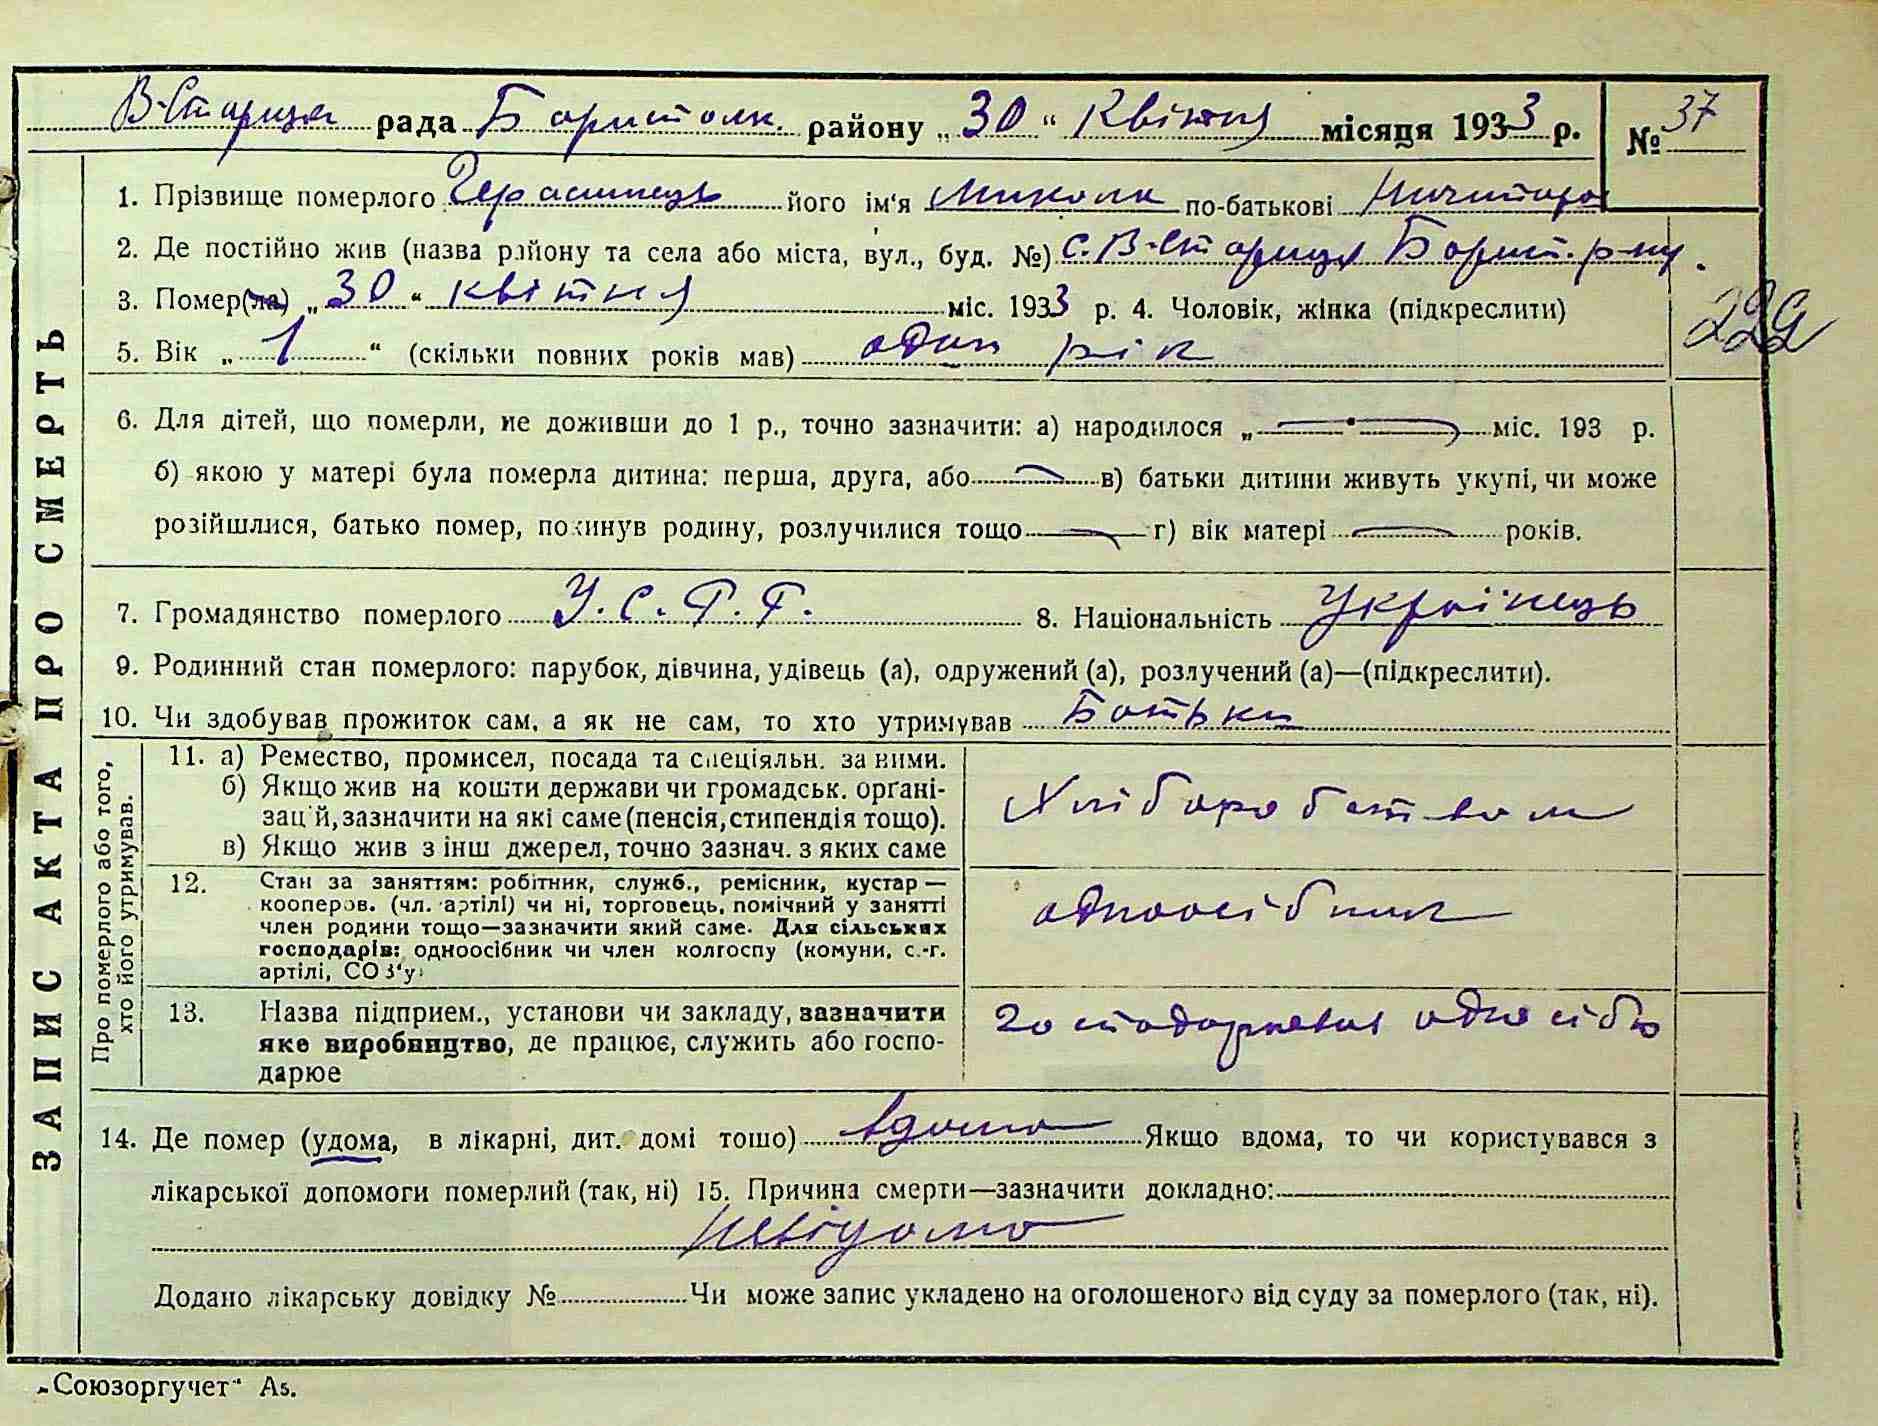 В-Стариця рада Бориспольк. району „30“ Квітня місяця 1933 р. № 37
1. Прізвище померлого Герасимець його ім‘я Микола по-батькові Ничипоро
2. Де постійно жив (назва району та села або міста, вул., буд. №) с. В-Стариця Борисп. р-ну.
3. Помер(ла) „30“ квітня міс. 1933 р. 4. Чоловік, жінка (підкреслити)
229
5. Вік „1“ (скільки повних років мав) один рік
6. Для дітей, що померли, не доживши до 1 р., точно зазначити: а) народилося „ міс. 193 р.
б) якою у матері була померла дитина: перша, друга, або в) батьки дитини живуть укупі, чи може
розійшлися, батько помер, покинув родину, розлучилися тощо г) вік матері років.
7. Громадянство померлого У.С.Р.Р. 8. Національність Українець
9. Родинний стан померлого: парубок, дівчина, удівець (а), одружений (а), розлучений (а)—(підкреслити).
10. Чи здобував прожиток сам, а як не сам, то хто утримував Батьки
ЗАПИС АКТА ПРО СМЕРТЬ
Про померлого або того,
хто його утримував.
11. а) Ремество, промисел, посада та спеціяльн. за ними.
б) Якщо жив на кошти держави чи громадськ. орґані-
зацій, зазначити на які саме (пенсія, стипендія тощо).
в) Якщо жив з інш джерел, точно зазнач. з яких саме
Хліборобством
12. Стан за заняттям: робітник, служб., ремісник, кустар —
кооперов. (чл. артілі) чи ні, торговець, помічний у занятті
член родини тощо—зазначити який саме. Для сільських
господарів: одноосібник чи член колгоспу (комуни, с.-г.
артілі, СОЗ‘у)
одноосібник
13. Назва підприєм., установи чи закладу, зазначити
яке виробництво, де працює, служить або госпо-
дарює
14. Де помер (удома, в лікарні, дит. домі тощо) вдома Якщо вдома, то чи користувався з
лікарської допомоги померлий (так, ні) 15. Причина смерти—зазначити докладно:
невідомо
Додано лікарську довідку № Чи може запис укладено на оголошеного від суду за померлого (так, ні).
„Союзоргучет“ А5.